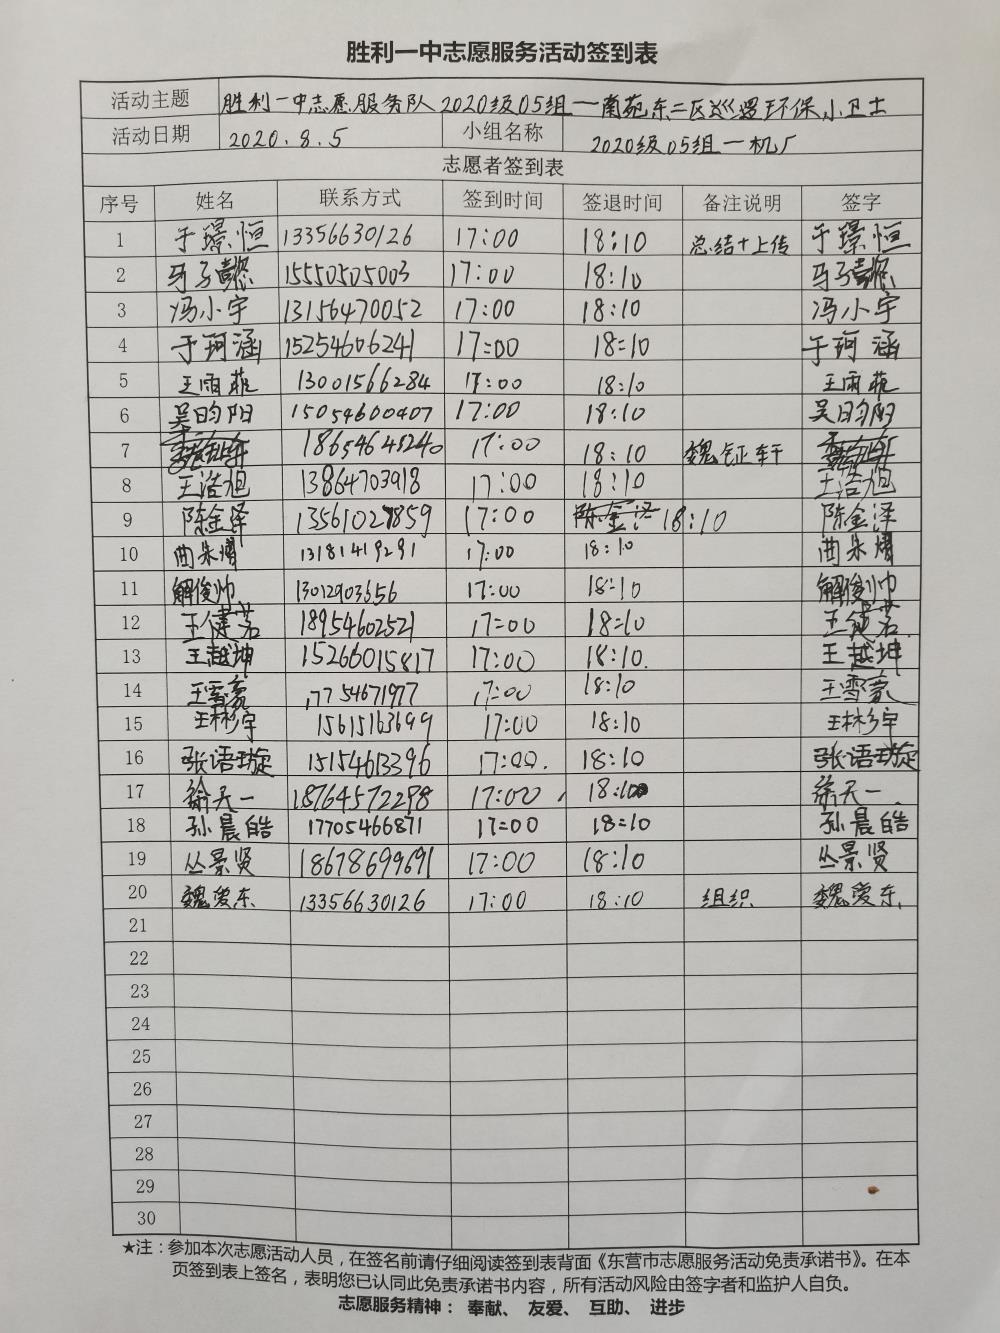 胜利一中志愿服务活动签到表
活动主题 胜利一中志愿服务队2020级05组一南苑东二区巡逻环保小卫士
活动日期 2020.8.5 小组名称 2020级05组一机厂
志愿者签到表
序号 姓名 联系方式 签到时间 签退时间 备注说明 签字
1 于璟恒 13356630126 17:00 18:10 总结+上传 于璟恒
2 马子懿 15550505003 17:00 18:10 马子懿
3 冯小宇 13156470052 17:00 18:10 冯小宇
4 于珂涵 15254606241 17:00 18:10 于珂涵
5 王雨菲 13001566284 17:00 18:10 王雨菲
6 吴昀阳 15054600407 17:00 18:10 吴昀阳
7 18654643240 17:00 18:10 魏钲轩
8 王浩旭 13864703918 17:00 18:10 王浩旭
9 陈金泽 13561027859 17:00 陈金泽 18:10 陈金泽
10 曲朱熠 13181419291 17:00 18:10 曲朱熠
11 解俊帅 13012903656 17:00 18:10 解俊帅
12 王健茗 18954602521 17:00 18:10 王健茗
13 王越坤 15266015817 17:00 18:10. 王越坤
14 王雪豪 17754671977 17:00 18:10 王雪豪
15 王彬宇 15615163699 17:00 18:10 王彬宇
16 张语璇 15154613396 17:00. 18:10 张语璇
17 徐天一 18764572298 17:00 18:10 徐天一
18 孙晨皓 17705466871 17:00 18:10 孙晨皓
19 丛景贤 18678699691 17:00 18:10 丛景贤
20 魏爱东 13356630126 17:00 18:10 组织 魏爱东
21
22
23
24
25
26
27
28
29
30
★注：参加本次志愿活动人员，在签名前请仔细阅读签到表背面《东营市志愿服务活动免责承诺书》。在本
页签到表上签名，表明您已认同此免责承诺书内容，所有活动风险由签字者和监护人自负。
志愿服务精神： 奉献、 友爱、 互助、 进步